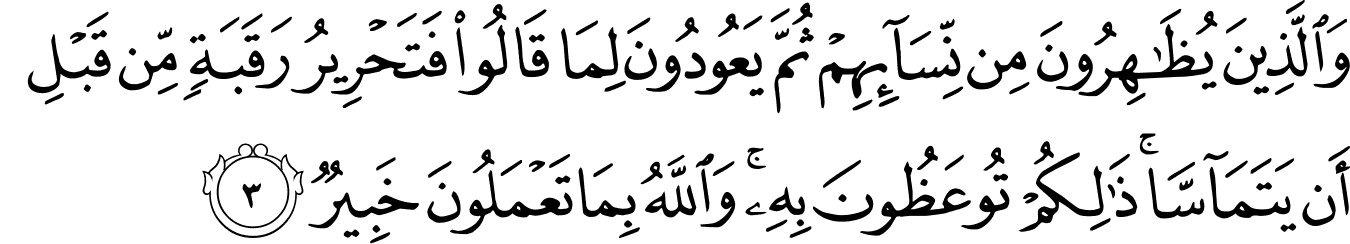 وَٱلَّذِينَ يُظَـٰهِرُونَ مِن نِّسَآئِهِمْ ثُمَّ يَعُودُونَ لِمَا قَالُوا۟ فَتَحْرِيرُ رَقَبَةٍ مِّن قَبْلِ
أَن يَتَمَآسَّا ۚ ذَٰلِكُمْ تُوعَظُونَ بِهِۦ ۚ وَٱللَّهُ بِمَا تَعْمَلُونَ خَبِيرٌ ٣